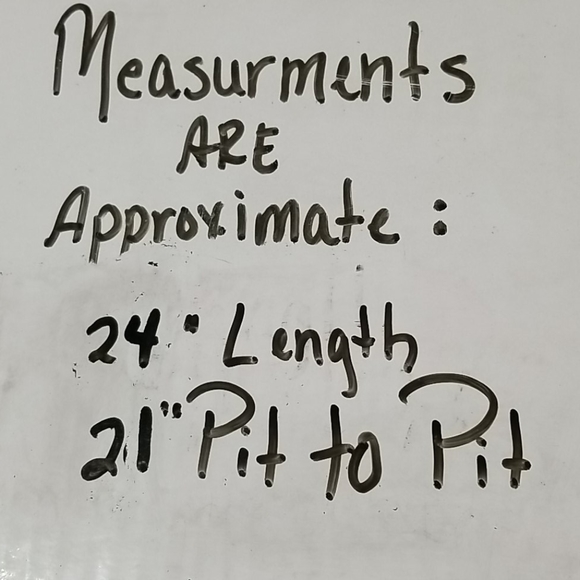 Measurments
ARE
Approximate :
24" Length
21" Pit to Pit